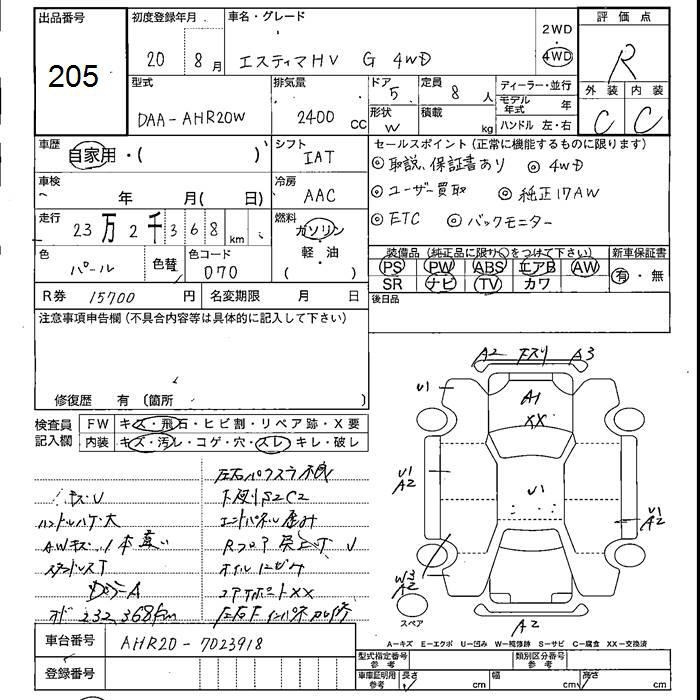 出品番号
205
初度登録年月
20 8 月
車名・グレード
エスティマHV G 4WD
2WD
4WD
評価点
R
型式
DAA-AHR20W
排気量
2400 CC
ドア
5
形状
W
定員
8 人
積載
kg
ディーラー・並行
モデル年式 年
ハンドル 左・右
外装 内装
C C
車歴
自家用・( )
シフト
IAT
セールスポイント(正常に機能するものに限ります)
◎取説、保証書あり ◎ 4WD
◎ユーザー買取 ◎純正17AW
◎ETC ◎バックモニター
車検
年 月( 日)
冷房
AAC
走行
23万2千368 km
燃料
ガソリン・軽・油
( )
色
パール
色替
色コード
070
装備品(純正品に限り○をつけて下さい)
PS PW ABS エアB AW
SR ナビ TV カワ
新車保証書
有・無
R券 15700 円
名変期限 月 日
後日品
注意事項申告欄(不具合内容等は具体的に記入して下さい)
修復歴 有(箇所 )
検査員記入欄
FW キズ・飛石・ヒビ割・リペア跡・X要
内装 キズ・汚レ・コゲ・穴・スレ・キレ・破レ
キズU
ハンドルハゲ大
スタッドレスT
232,368km
下廻りS2C2
A2 下スリ A3
U1
A1
XX
U1
A2
U1
U1
A2
W3
A2
スペア
A2
A-キズ E-エクボ U-凹み W-補修跡 S-サビ C-腐食 XX-交換済
車台番号
AHR20-7023918
登録番号
型式指定番号
参考
類別区分番号
参考
車庫証明用
参考
長さ cm
幅 cm
高さ cm